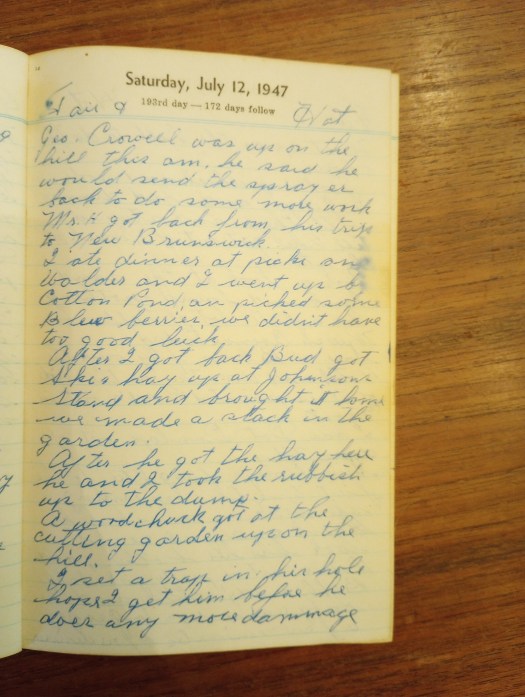 Saturday, July 12, 1947
193rd day — 172 days follow
Fair & Hot
Geo. Crowell was up on the
hill this am. he said he
would send the sprayer
back to do some more work
Mr. H got back from his trip
to New Brunswick.
I ate dinner at and
Walder and I went up by
Cotton Pond an picked some
Blew berries, we didn't have
too good luck.
After I got back Bud got
his hay up at Johnson
stand and brought it home
we made a stack in the
garden.
After he got the hay here
he and I took the rubbish
up to the dump.
A woodchuck got at the
cutting garden up on the
hill.
I set a trap in his hole
hope I get him before he
does any more dammage